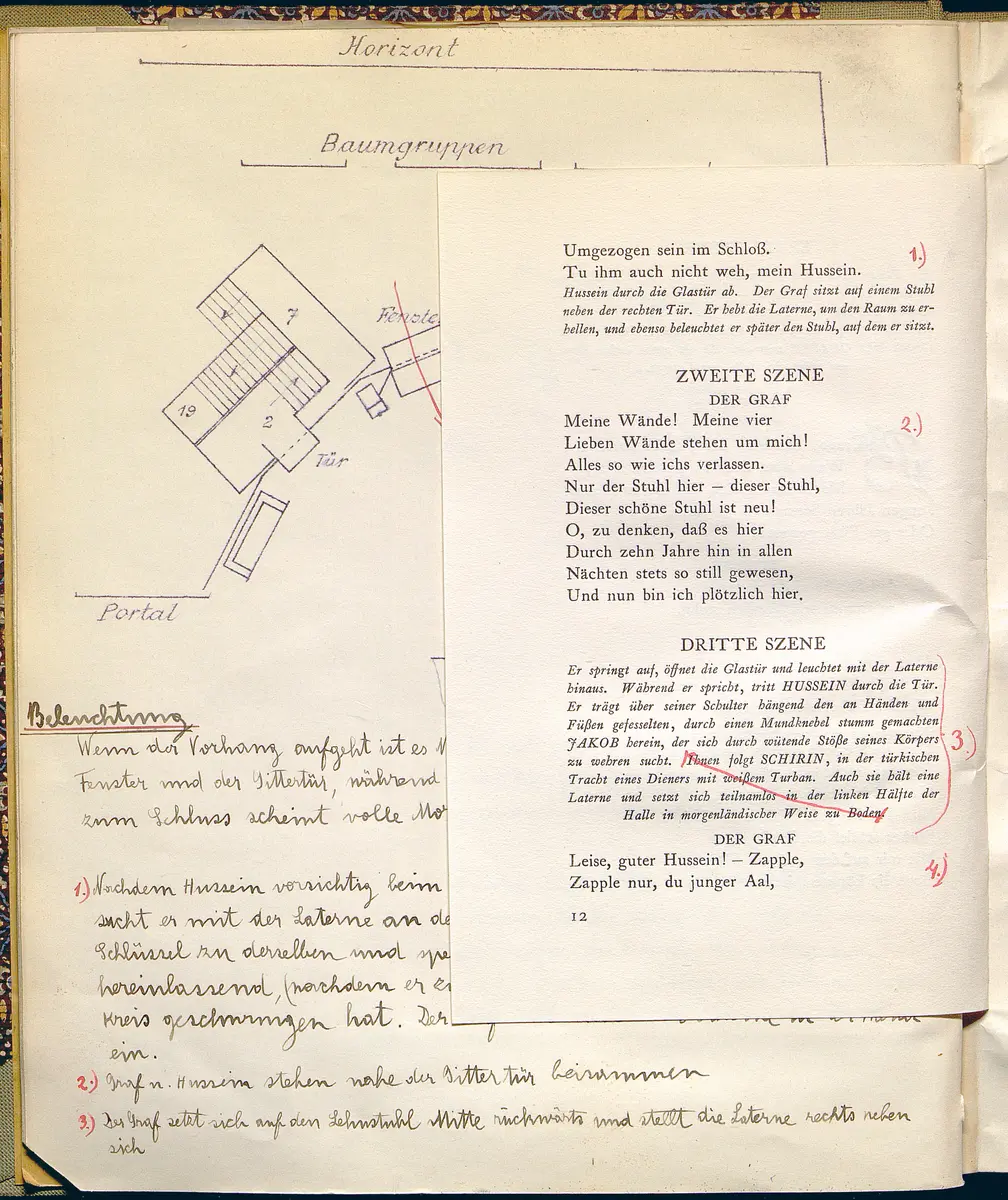 Horizont
Baumgruppen
Fenste
7
19
2
Tür
Portal
Beleuchtung
Wenn der Vorhang aufgeht ist es
Fenster und der Gittertür, während
zum Schluss scheint volle Mo
1.) Nachdem Hussein vorsichtig beim
sucht er mit der Laterne an de
Schlüssel zu derselben und spe
hereinlassend, (nachdem er
kreis geschwungen hat. Der
ein.
2.) Graf u. Hussein stehen nahe der Gittertür beisammen
3.) Der Graf setzt sich auf den Lehnstuhl Mitte rückwärts und stellt die Laterne rechts neben
sich
Umgezogen sein im Schloß. 1.)
Tu ihm auch nicht weh, mein Hussein.
Hussein durch die Glastür ab. Der Graf sitzt auf einem Stuhl
neben der rechten Tür. Er hebt die Laterne, um den Raum zu er-
hellen, und ebenso beleuchtet er später den Stuhl, auf dem er sitzt.
ZWEITE SZENE
DER GRAF
Meine Wände! Meine vier 2.)
Lieben Wände stehen um mich!
Alles so wie ichs verlassen.
Nur der Stuhl hier – dieser Stuhl,
Dieser schöne Stuhl ist neu!
O, zu denken, daß es hier
Durch zehn Jahre hin in allen
Nächten stets so still gewesen,
Und nun bin ich plötzlich hier.
DRITTE SZENE
Er springt auf, öffnet die Glastür und leuchtet mit der Laterne
hinaus. Während er spricht, tritt HUSSEIN durch die Tür.
Er trägt über seiner Schulter hängend den an Händen und
Füßen gefesselten, durch einen Mundknebel stumm gemachten
JAKOB herein, der sich durch wütende Stöße seines Körpers 3.)
zu wehren sucht. Ihnen folgt SCHIRIN, in der türkischen
Tracht eines Dieners mit weißem Turban. Auch sie hält eine
Laterne und setzt sich teilnamlos in der linken Hälfte der
Halle in morgenländischer Weise zu Boden.
DER GRAF
Leise, guter Hussein! – Zapple, 4.)
Zapple nur, du junger Aal,
12